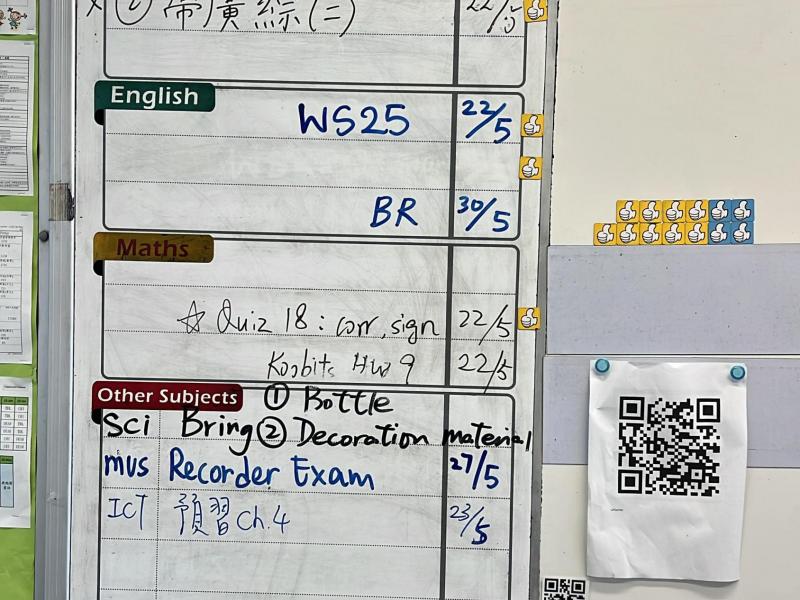 ② 帶黃綜(二) 22/5
English
WS25 22/5
BR 30/5
Maths
☆ Quiz 18: corr, sign 22/5
Koobits Hw 9 22/5
Other Subjects
① Bottle
Sci Bring ② Decoration material
mus Recorder Exam 27/5
ICT 預習 Ch.4 23/5